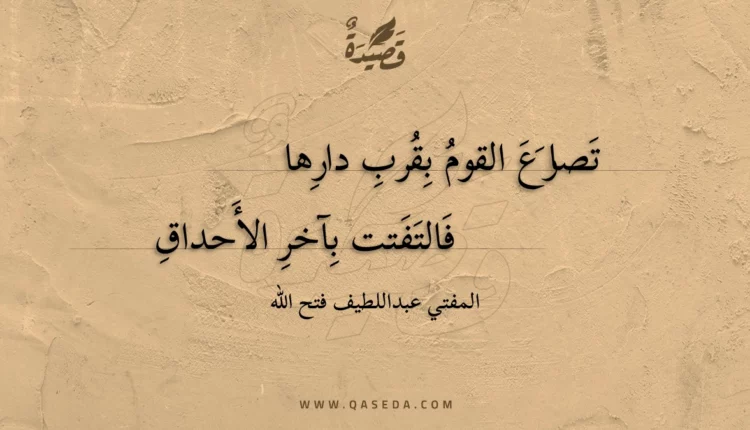 قَصِيْدَةٌ
تَصارَعَ القومُ بِقُربِ دارِها
فَالتَفَتت بِآخرِ الأَحداقِ
المفتي عبداللطيف فتح الله
WWW.QASEDA.COM